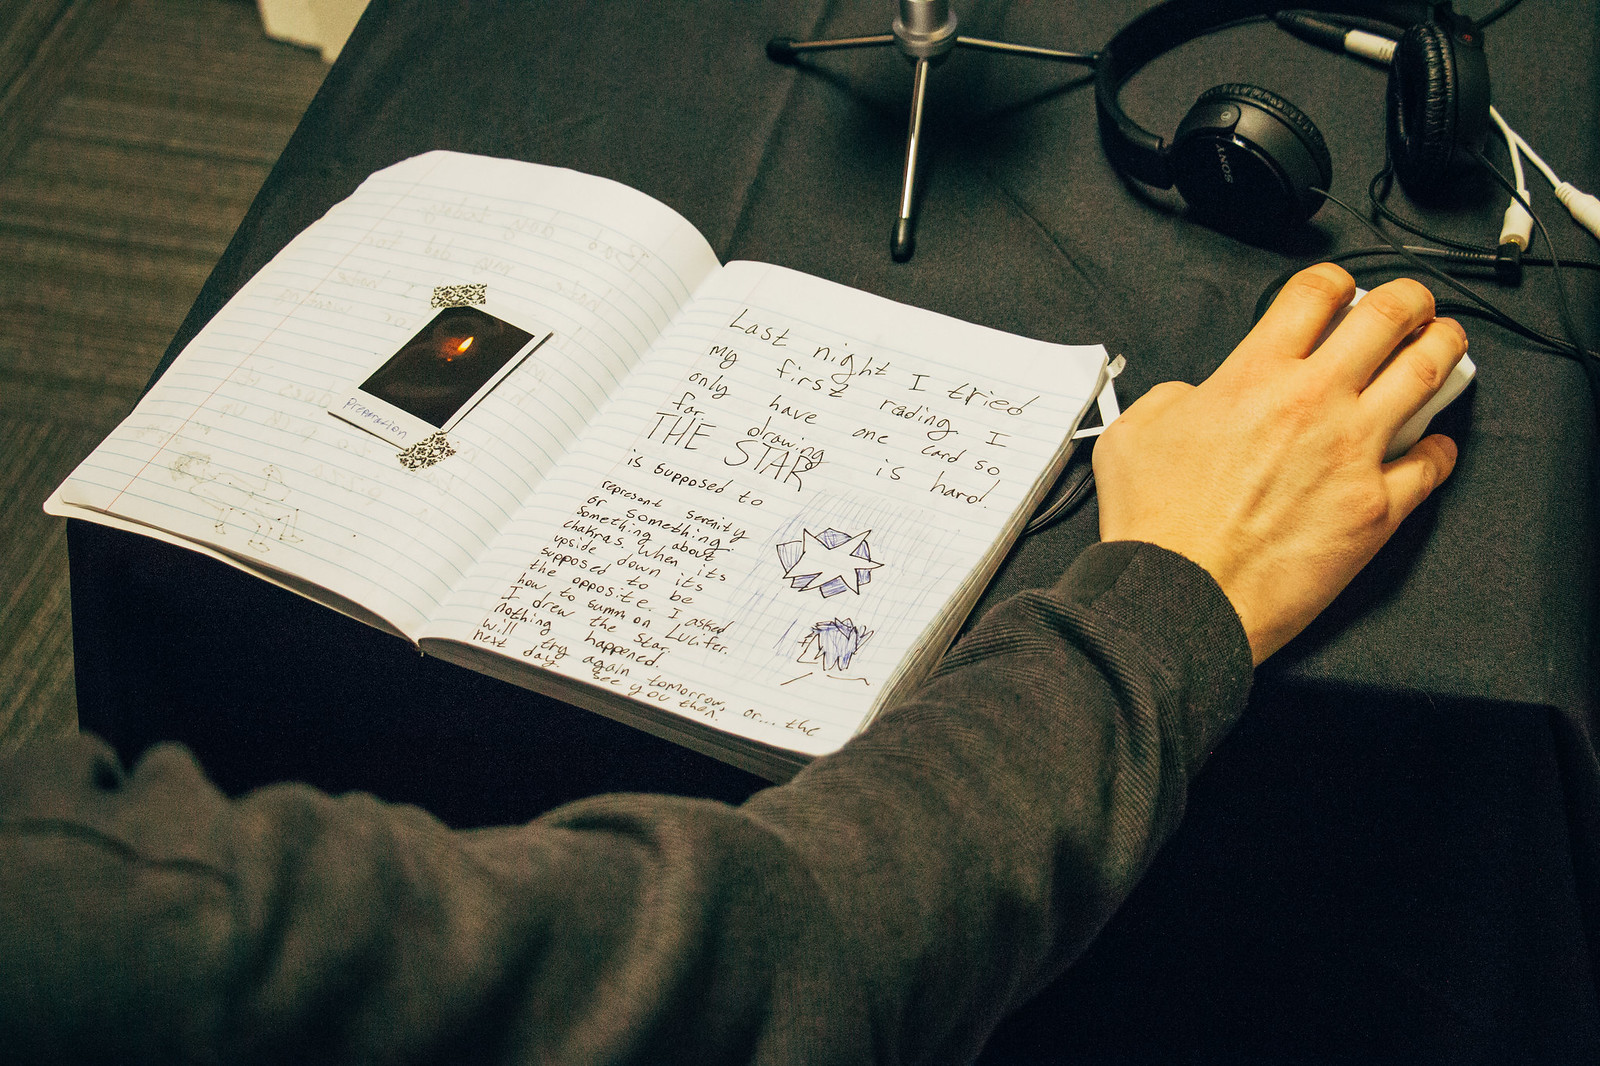 preparation
Last night I tried
my first rading I
only have one card so
far, drawing is hard.
THE STAR
is supposed to
represent serenity
or something.
Something about
chakras. When its
upside down its
supposed to be
the opposite. I asked
how to summon Lucifer.
I drew the star.
nothing happened.
will try again tomorrow, or... the
next day. see you then.
SONY